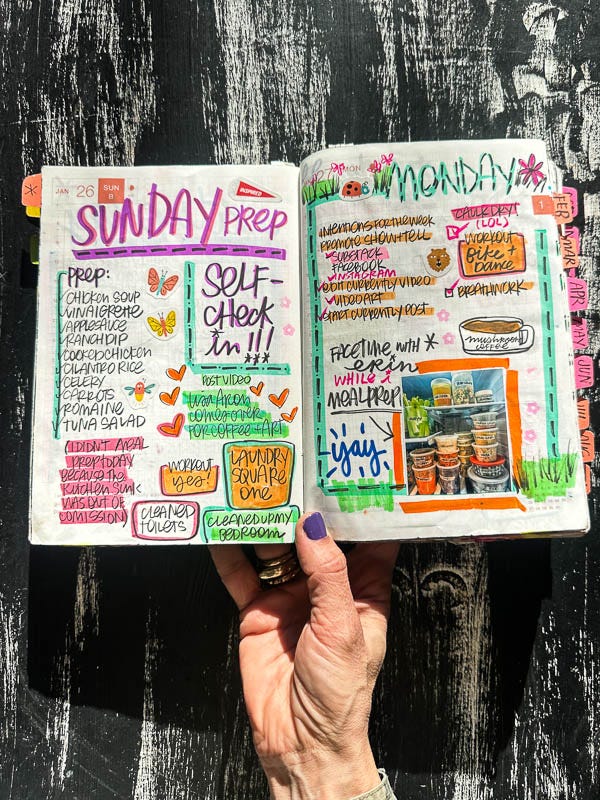 JAN 26 SUN
INSPIRED
SUNDAY PREP
PREP:
CHICKEN SOUP
VINAIGRETTE
APPLESAUCE
RANCH DIP
COOKED CHICKEN
CILANTRO RICE
CELERY
CARROTS
ROMAINE
TUNA SALAD
SELF-
CHECK
in!!!
POST VIDEO
COMES OVER
FOR COFFEE + ART
(I DIDN'T MEAL
PREP TODAY
BECAUSE THE
KITCHEN SINK
WAS OUT OF
COMISSION)
WORKOUT
yes!
LAUNDRY
SQUARE
ONE
CLEANED
TOILETS
CLEANED UP MY
BEDROOM
27 MON
MONDAY
INTENTIONS FOR THE WEEK
PROMOTE SHOW + TELL
SUBSTACK
FACEBOOK
INSTAGRAM
EDIT CURRENTLY VIDEO
VIDEO ART
START CURRENTLY POST
CAULK DRY!
(LOL)
WORKOUT
Bike +
DANCE
BREATHWORK
mushroom
COFFEE
FACETIME WITH
erin
WHILE I
MEAL PREP
yay
1
FEB
MAR
APR
JUN